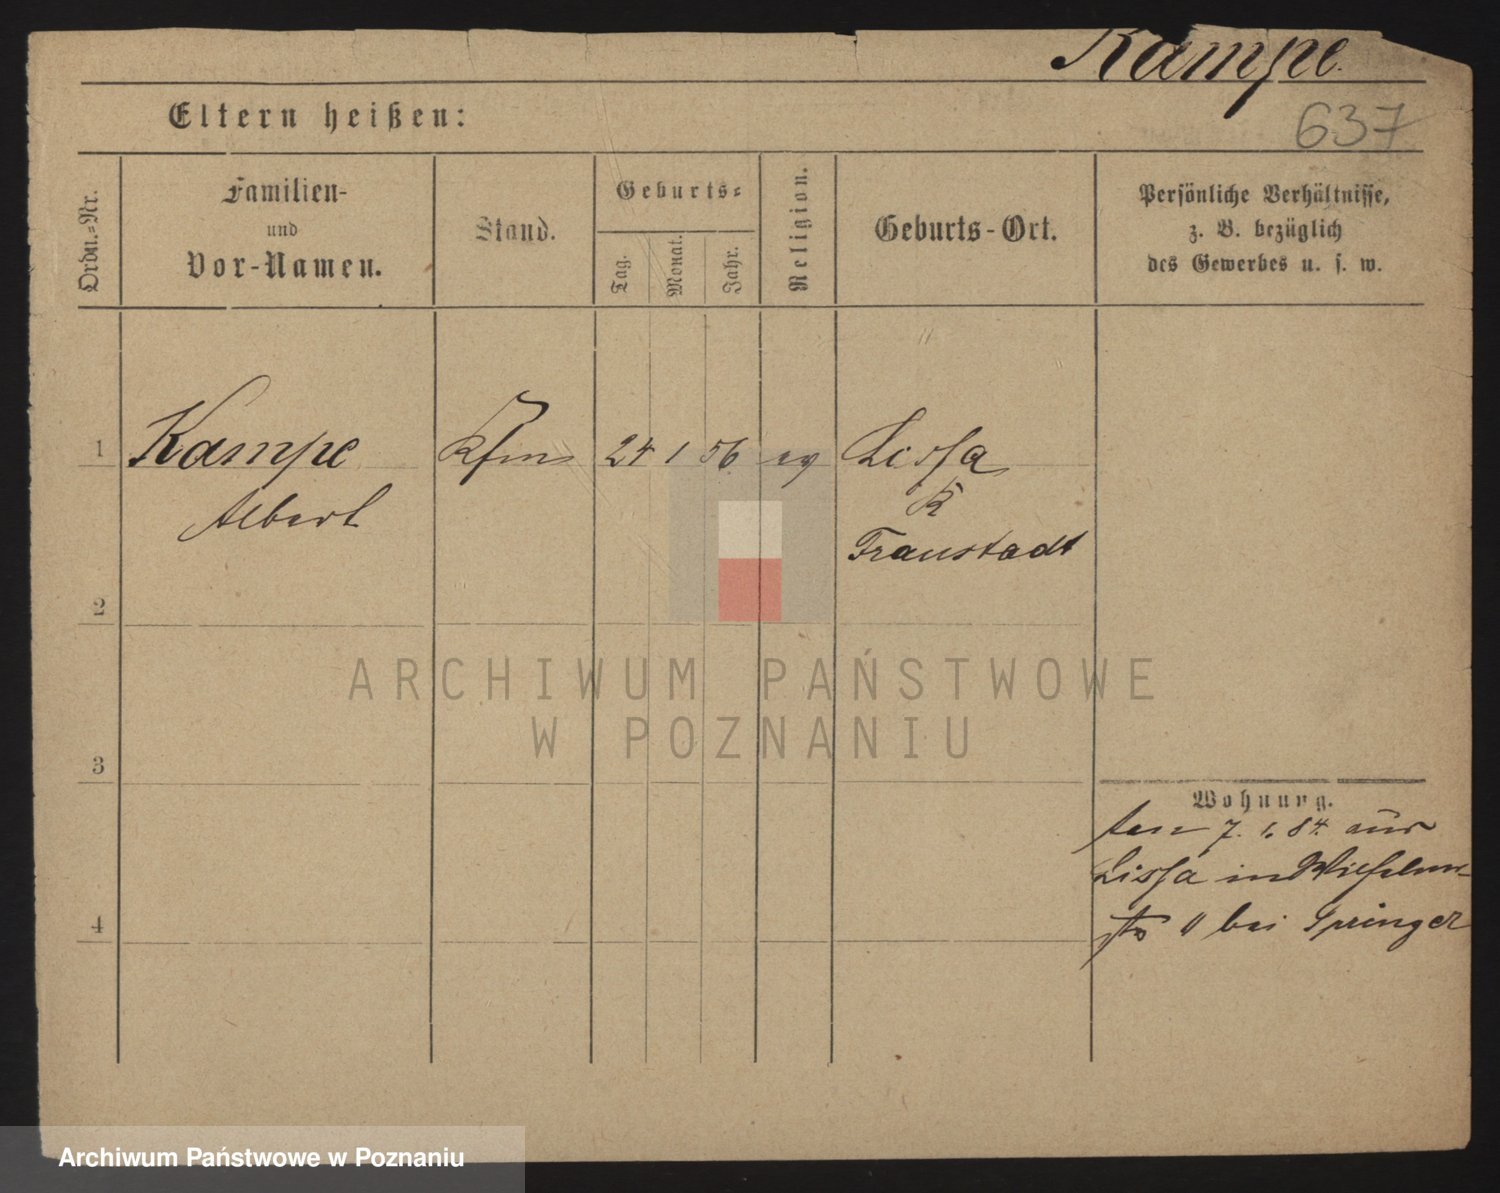 Kampe.
637
Eltern heißen:
Ordn.=Nr.
Familien-
und
Vor-Namen.
Stand.
Geburts=
Tag.
Monat.
Jahr.
Religion.
Geburts-Ort.
Persönliche Verhältnisse,
z. B. bezüglich
des Gewerbes u. s. w.
1 Kampe Kfm 24 1 56 ev Lissa
Albert
K
Fraustadt
2
ARCHIWUM PAŃSTWOWE
W POZNANIU
3
Wohnung.
den 7. 1. 84. aus
Lissa in Wilhelm-
str bei Springer
4
Archiwum Państwowe w Poznaniu